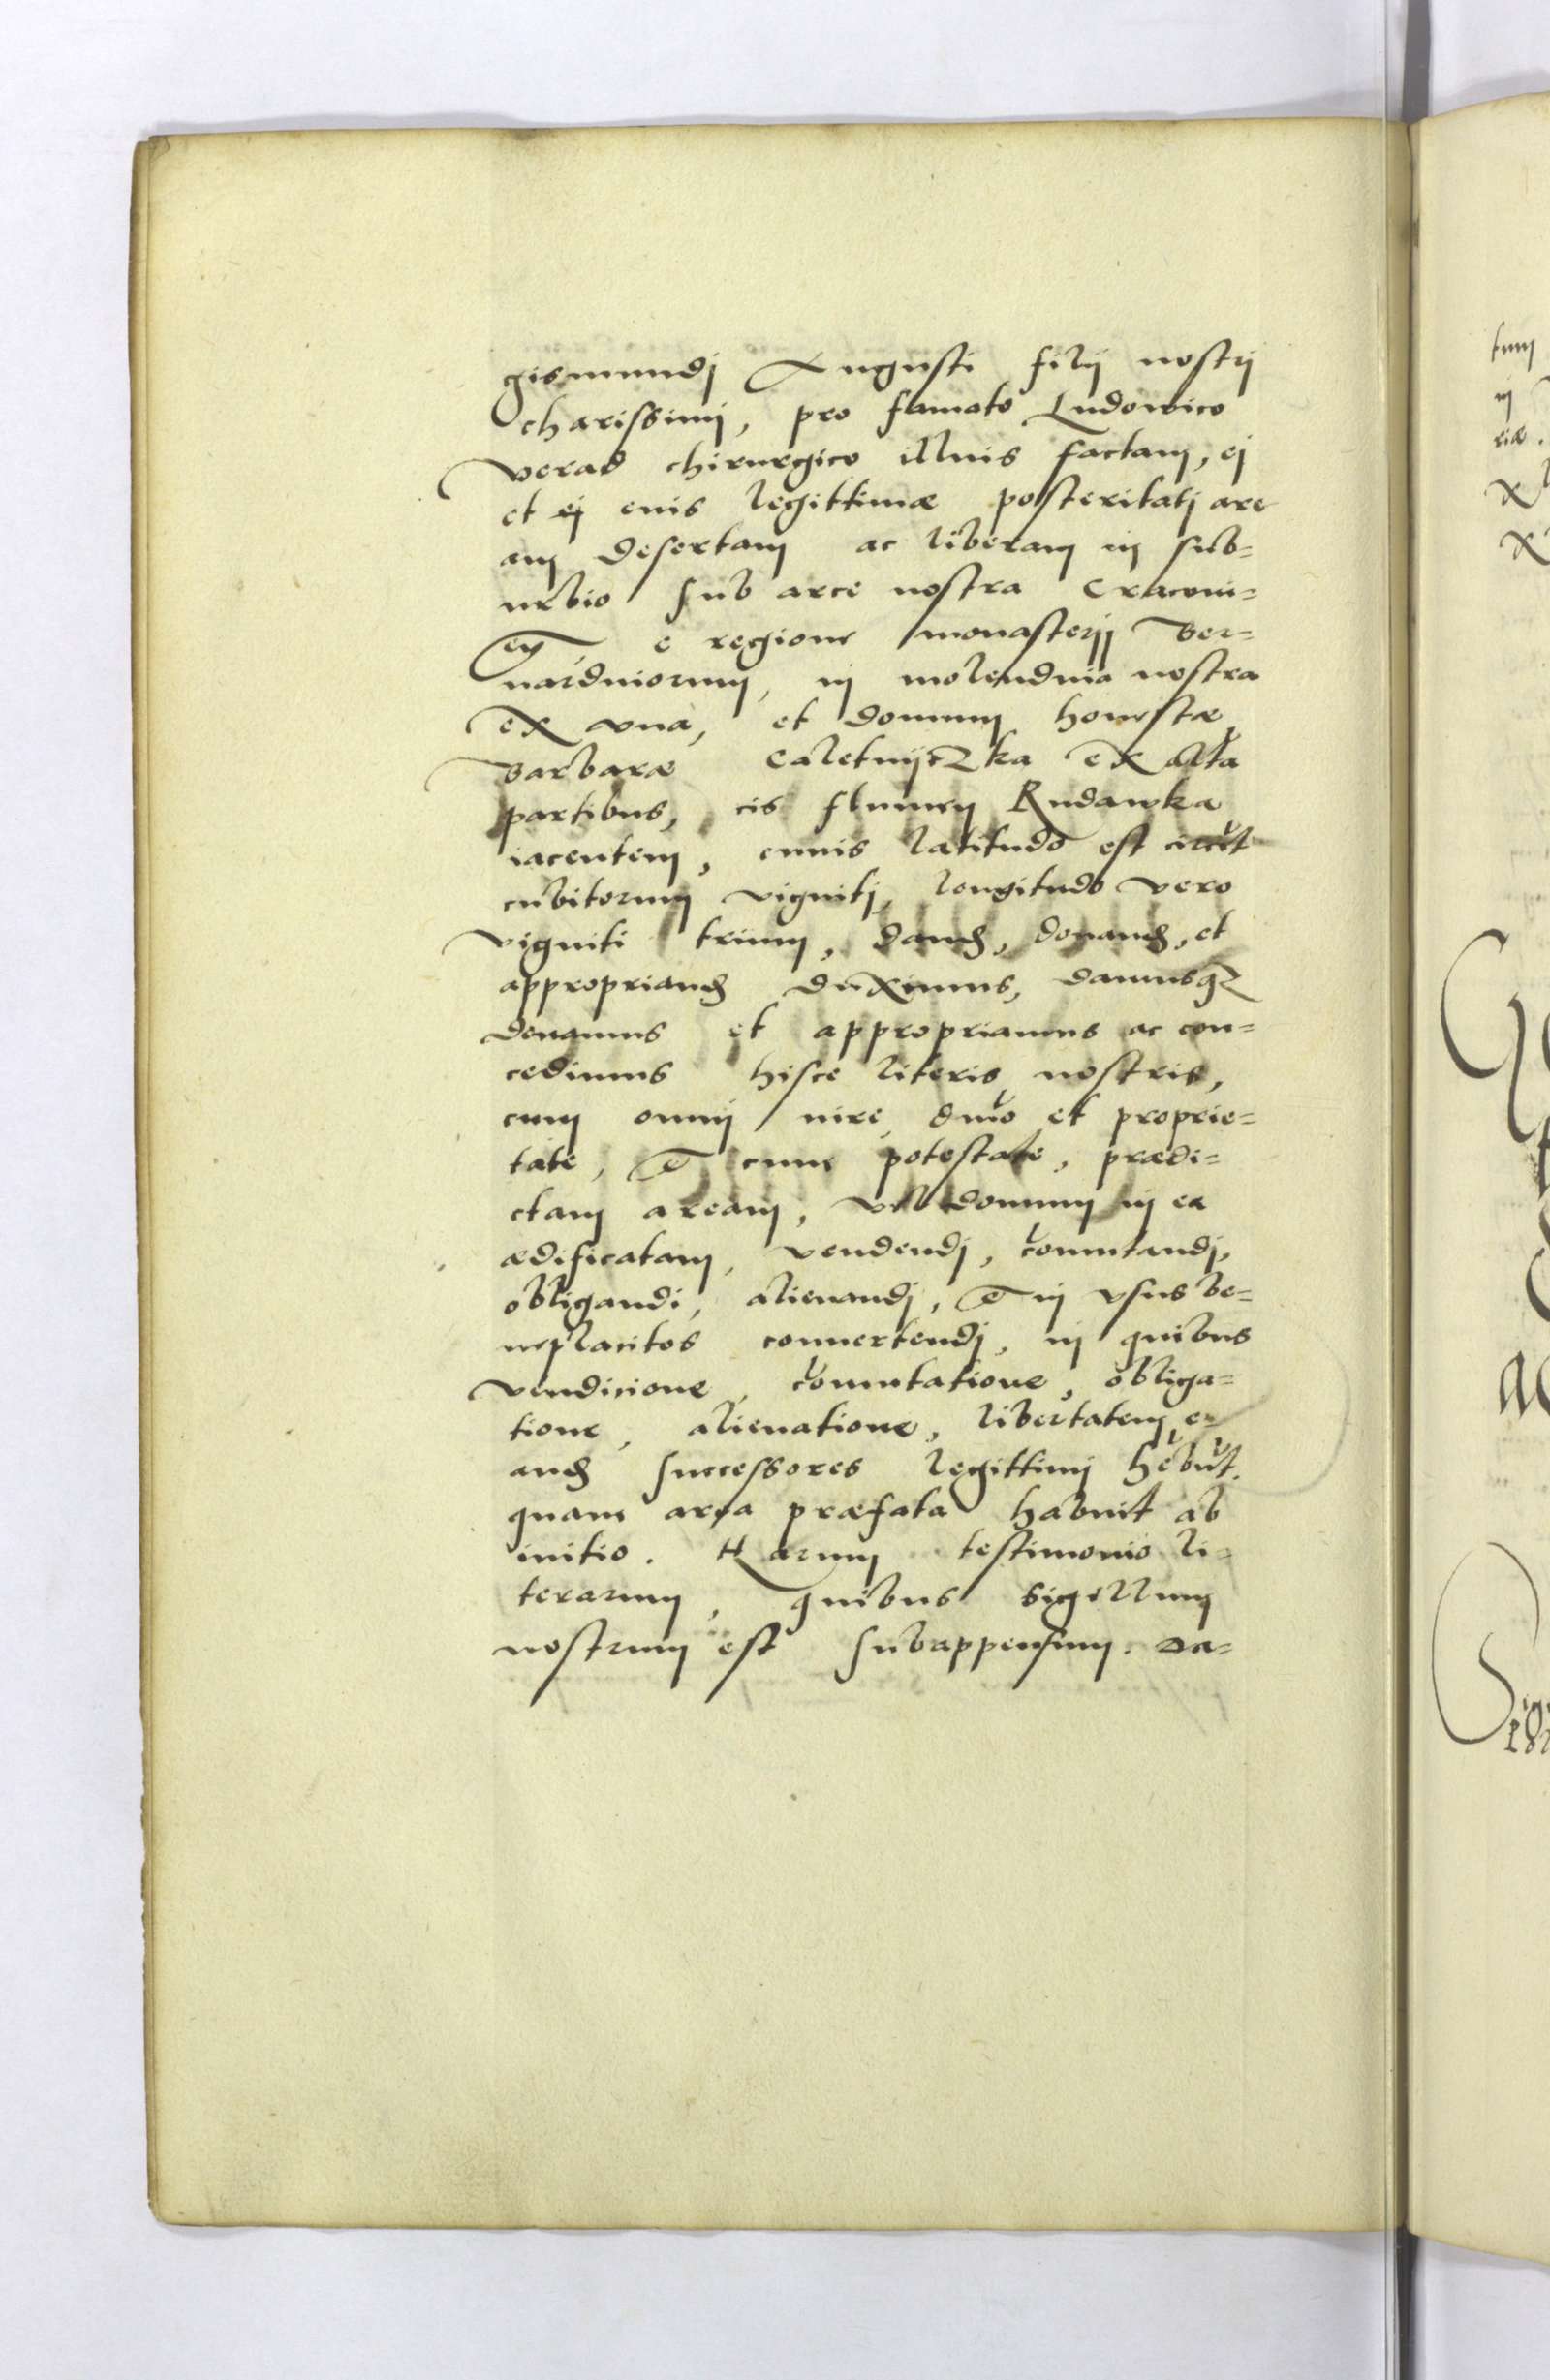 gismundj Augusti filij nostrj
charissimj, pro famato Ludovico
verad chirurgico illius factam, ej
et ej euis legittimæ posteritatj are
am desertam ac liberam in sub=
urbio sub arce nostra Cracoui=
eñ e regione monasterij Ber=
nardinorum, in molendina nostra
ex vna, et domum honestæ
Barbaræ Caletnijczka ex alťa
partibus, cis flumen Rudawka
iacentem, cuius latitudo est circit
cubitorum viginitj, longitudo vero
viginiti trium, dand, donand, et
appropriand duximus, damusq3
donamus et appropriamus ac con=
cedimus hisce literis nostris,
cum omnj iure dnio et proprie=
tate, & cum potestate, prædi=
ctam aream, vel domum in ea
ædificatam, vendendj, comutandj,
obligandi, alienandj, & in vsus be=
neplacitos conuertendj, in quibus
vendicione, comutatione, obliga=
tione, alienatione, libertatem e=
and successores legittimj hebut.
quam area præfata habuit ab
initio. Harum testimonio li=
terarum, quibus sigillum
nostrum est subappensum. Da=
tum